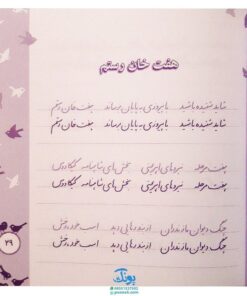 هشت خان رستم
شاید شنیده باشید با پیروزی به پایان رساند هفت خان رستم
شاید شنیده باشید با پیروزی به پایان رساند هفت خان رستم
هفت مرحله نیروهای اهریمنی بخش های شاهنامه کیکاووس
هفت مرحله نیروهای اهریمنی بخش های شاهنامه کیکاووس
جنگ دیوان مازندران از بند رهایی دید اسب خود رخش
جنگ دیوان مازندران از بند رهایی دید اسب خود رخش
۲۹
پونک